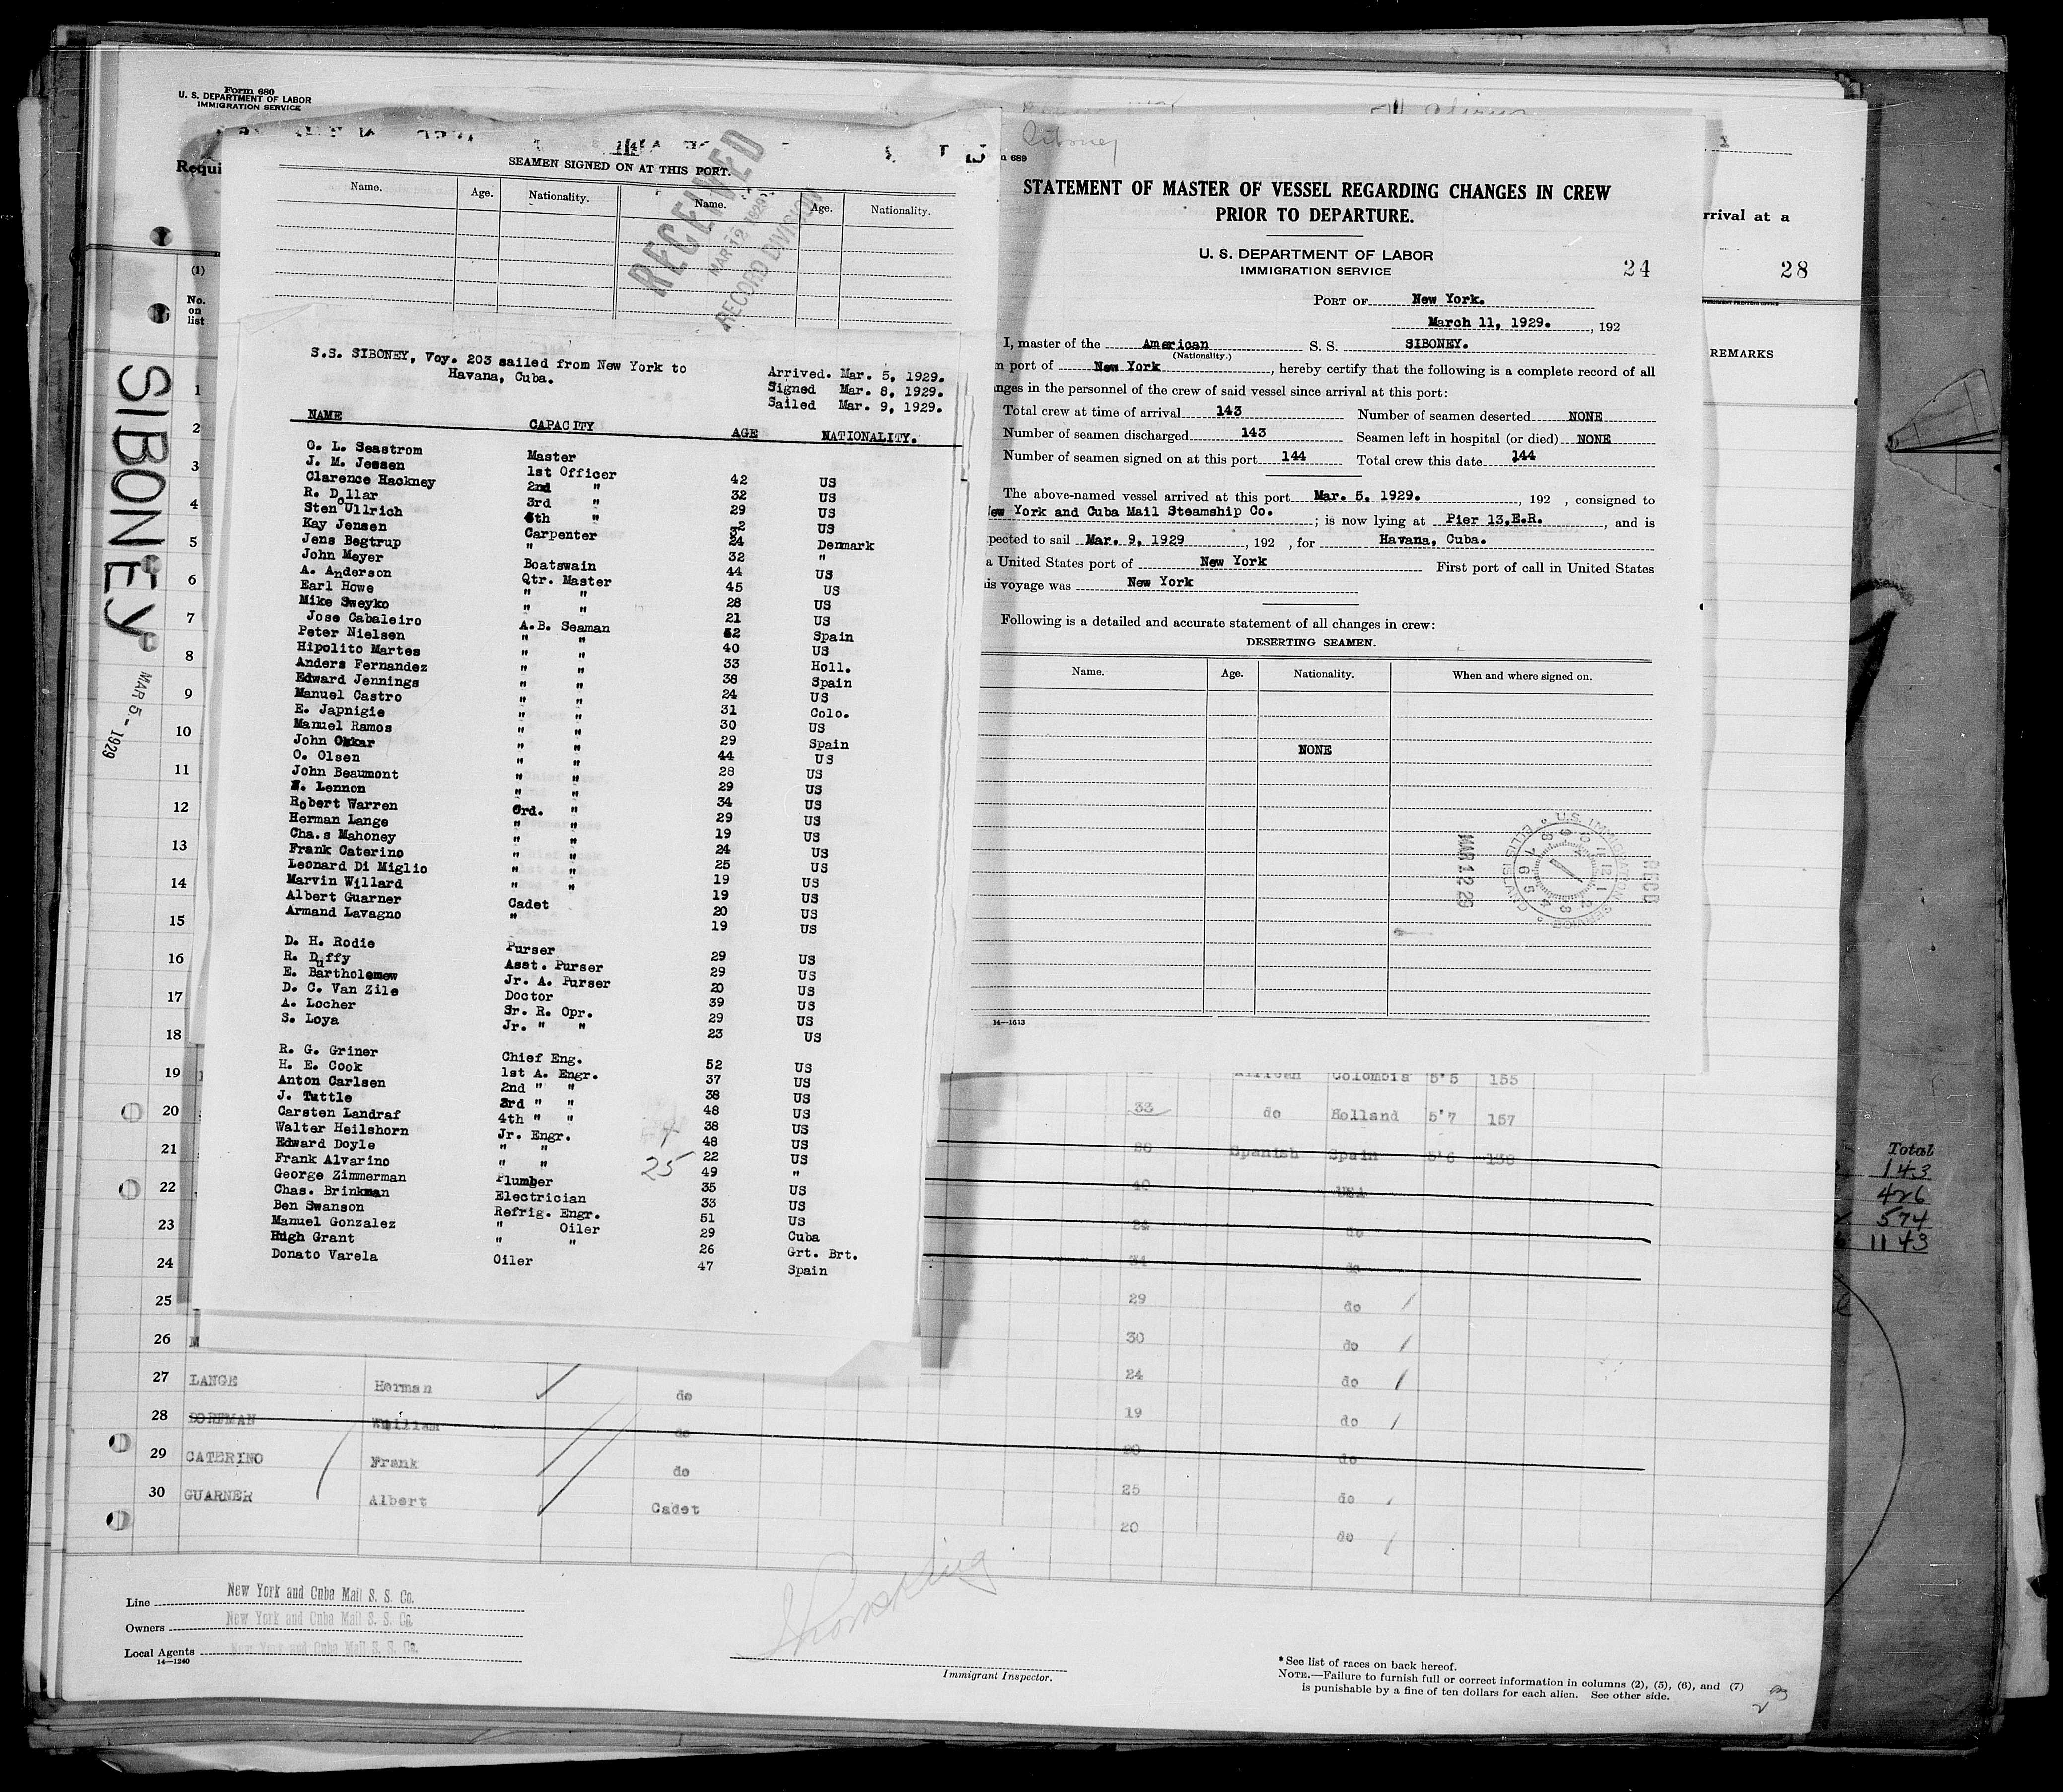 Form 680
U. S. DEPARTMENT OF LABOR
IMMIGRATION SERVICE
Requi
rrival at a
28
(1)
No.
on
list
REMARKS
SIBONEY
MAR 5 - 1929
SEAMEN SIGNED ON AT THIS PORT.
Name. Age. Nationality. Name. Age. Nationality.
RECEIVED
MAR 12 1929
RECORD DIVISION
S.S. SIBONEY, Voy. 203 sailed from New York to
Havana, Cuba.
Arrived. Mar. 5, 1929.
Signed Mar. 8, 1929.
Sailed Mar. 9, 1929.
NAME CAPACITY AGE NATIONALITY.
O. L. Seastrom Master
J. M. Jessen 1st Officer 42 US
Clarence Hackney 2nd " 32 US
R. Dollar 3rd " 29 US
Sten Ullrich 4th " 32 US
Kay Jensen Carpenter 24 Denmark
Jens Begtrup " 32 "
John Meyer Boatswain 44 US
A. Anderson Qtr. Master 45 US
Earl Howe " " 28 US
Mike Sweyko " " 21 US
Jose Cabaleiro A.B. Seaman 52 Spain
Peter Nielsen " " 40 US
Hipolito Martes " " 33 Holl.
Anders Fernandez " " 38 Spain
Edward Jennings " " 24 US
Manuel Castro " " 31 Colo.
E. Japnigie " " 30 US
Manuel Ramos " " 29 Spain
John " " 44 US
O. Olsen " " 28 US
John Beaumont " " 29 US
Lennon " " 34 US
Robert Warren Ord. " 29 US
Herman Lange " " 19 US
Cha.s Mahoney " " 24 US
Frank Caterino " " 25 US
Leonard Di Miglio " " 19 US
Marvin Willard " " 19 US
Albert Guarner Cadet 20 US
Armand Lavagno " 19 US
D. H. Rodie Purser 29 US
R. Duffy Asst. Purser 29 US
E. Bartholemew Jr. A. Purser 20 US
D. C. Van Zile Doctor 39 US
A. Locher Sr. R. Opr. 29 US
S. Loya Jr. " " 23 US
R. G. Griner Chief Eng. 52 US
H. E. Cook 1st A. Engr. 37 US
Anton Carlsen 2nd " " 38 US
J. Tuttle 3rd " " 48 US
Carsten Landraf 4th " " 38 US
Walter Heilshorn Jr. Engr. 48 US
Edward Doyle " " 22 US
Frank Alvarino " " 49 "
George Zimmerman Plumber 35 US
Chas. Brinkman Electrician 33 US
Ben Swanson Refrig. Engr. 51 US
Manuel Gonzalez " Oiler 29 Cuba
Hugh Grant " " 26 Grt. Brt.
Donato Varela Oiler 47 Spain
25
Siboney
m 689
STATEMENT OF MASTER OF VESSEL REGARDING CHANGES IN CREW
PRIOR TO DEPARTURE.
U. S. DEPARTMENT OF LABOR
IMMIGRATION SERVICE
24
PORT OF New York.
March 11, 1929. , 192
I, master of the American S. S. SIBONEY.
(Nationality.)
m port of New York, hereby certify that the following is a complete record of all
anges in the personnel of the crew of said vessel since arrival at this port:
Total crew at time of arrival 143 Number of seamen deserted NONE
Number of seamen discharged 143 Seamen left in hospital (or died) NONE
Number of seamen signed on at this port 144 Total crew this date 144
The above-named vessel arrived at this port Mar. 5, 1929. , 192 , consigned to
New York and Cuba Mail Steamship Co. ; is now lying at Pier 13,E.R. , and is
pected to sail Mar. 9, 1929 , 192 , for Havana, Cuba.
a United States port of New York First port of call in United States
is voyage was New York
Following is a detailed and accurate statement of all changes in crew:
DESERTING SEAMEN.
Name. Age. Nationality. When and where signed on.
NONE
REC'D
MAR 12 29
U.S. IMMIGRATION SERVICE
ELLIS IS.
14—1613
1
2
3
4
5
6
7
8
9
10
11
12
13
14
15
16
17
18
19
20
21
22
23
24
25
26
African Colombia 5'5 155
33 do Holland 5'7 157
26 Spanish Spain 5'6 138
40 USA
24 do
34 do
29 do
30 do
27 LANGE Herman do 24 do
28 DORFMAN William do 19 do
20 do
29 CATERINO Frank do 25 do
30 GUARNER Albert Cadet 20 do
Total
143
426
574
1143
Line New York and Cuba Mail S. S. Co.
Owners New York and Cuba Mail S. S. Co.
Local Agents New York and Cuba Mail S. S. Co.
14—1240
Immigrant Inspector.
* See list of races on back hereof.
NOTE.—Failure to furnish full or correct information in columns (2), (5), (6), and (7)
is punishable by a fine of ten dollars for each alien. See other side.